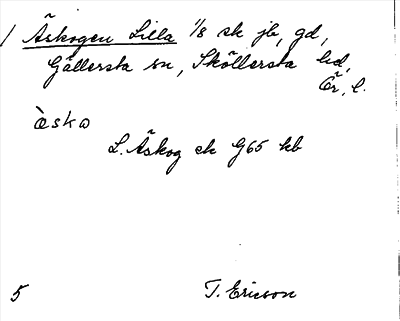 / Äskogen Lilla 1/8 sk jb, gd,
Gällersta sn, Sköllersta hd,
Ör. l.
àska
L. Äskog ek G65 kb
5 T. Ericson